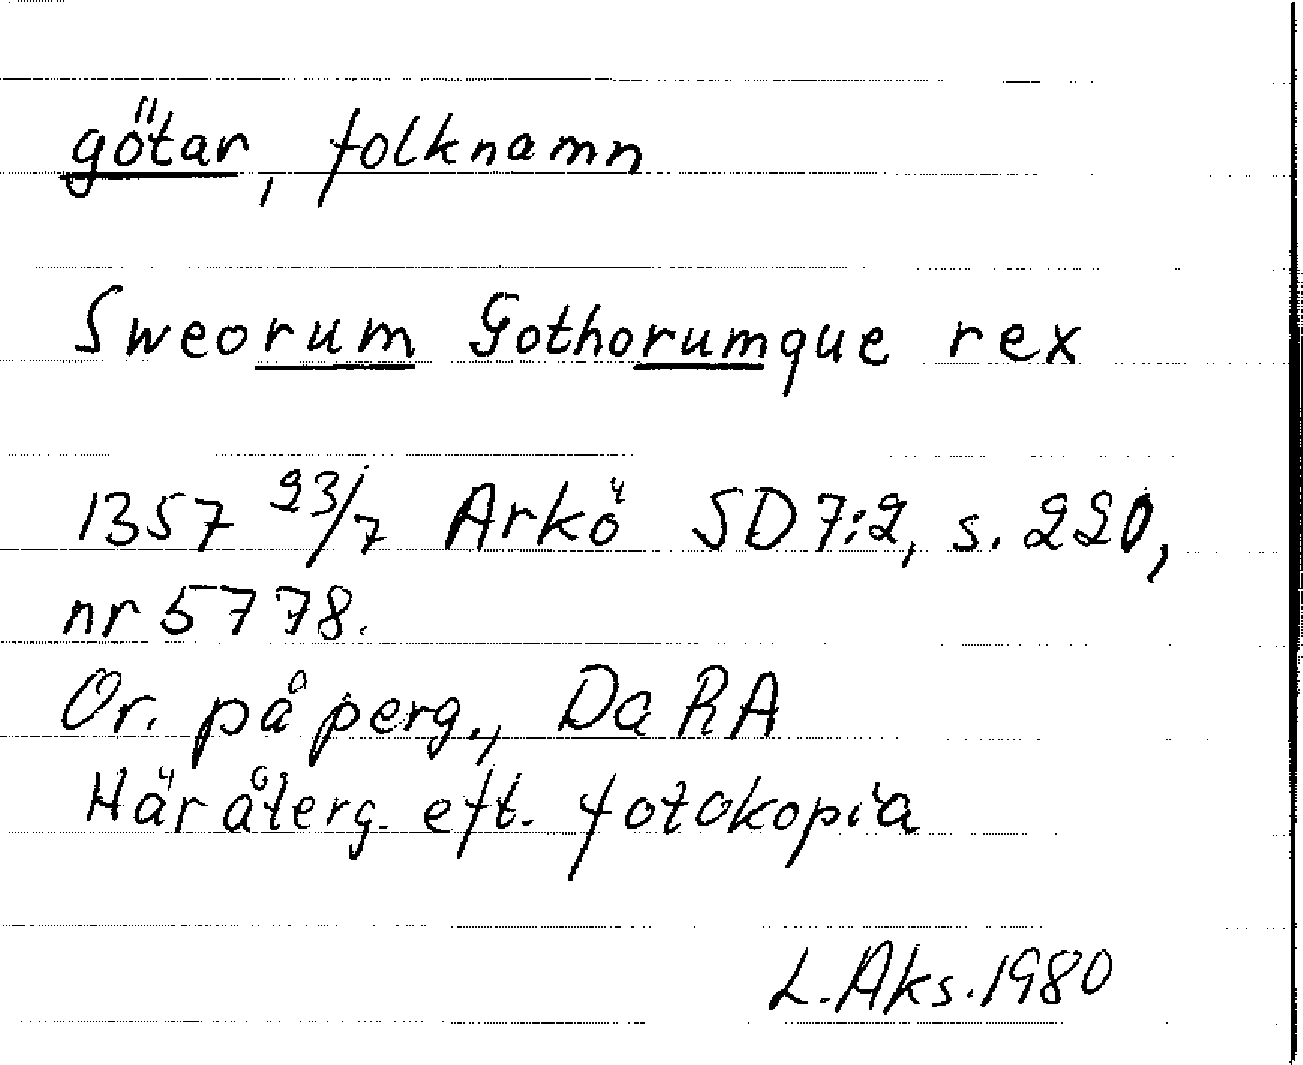 götar, folknamn
Sweorum Gothorumque rex
1357 23/7 Arkö SD 7:2, s. 220,
nr 5778.
Or. på perg., Da RA
Här återg. eft. fotokopia
L. Aks. 1980